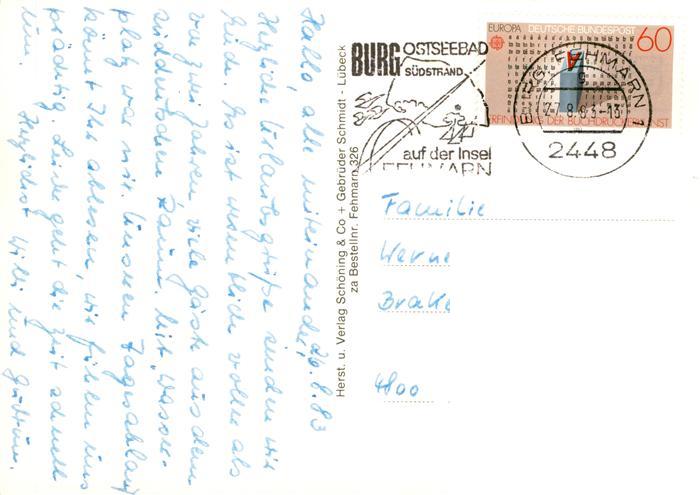 Hallo, alle miteinander, 26.8.83
Herzliche Urlaubsgrüße senden wir
Euch. Es ist wesentlich voller als
vor zwei Jahren viele Gäste aus dem
süddeutschen Raum. Mit Wasser-
platz war nix. Unseren Tagesablauf
könnt Ihr ablesen, wir fühlen uns
prächtig. Leider geht die Zeit schnell
um. Herzlichst Willi und
Herst. u. Verlag Schöning & Co + Gebrüder Schmidt - Lübeck
za Bestellnr. Fehmarn 326
BURG OSTSEEBAD
SÜDSTRAND
auf der Insel
FEHMARN
EUROPA DEUTSCHE BUNDESPOST
60
ERFINDUNG DER BUCHDRUCKERKUNST
BURG, FEHMARN 1
g
27.8.83-13
2448
Familie
Werne
Brake
4800